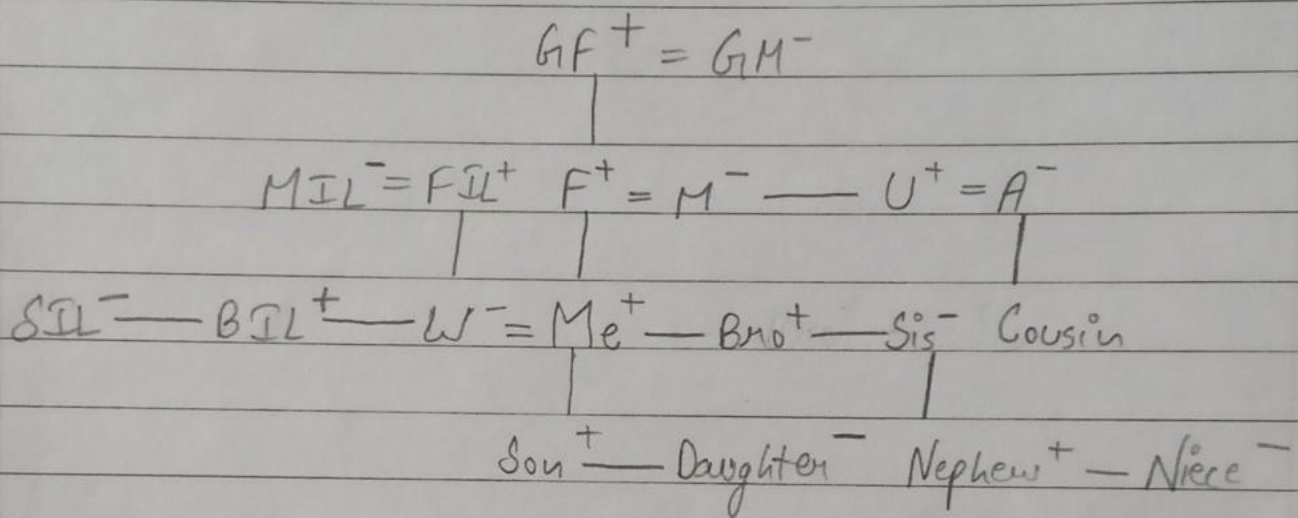 GF+ = GM-
MIL- = FIL+ F+ = M- — U+ = A-
SIL- — BIL+ — W- = Me+ — Bro+ — Sis- Cousin
Son+ — Daughter- Nephew+ — Niece-